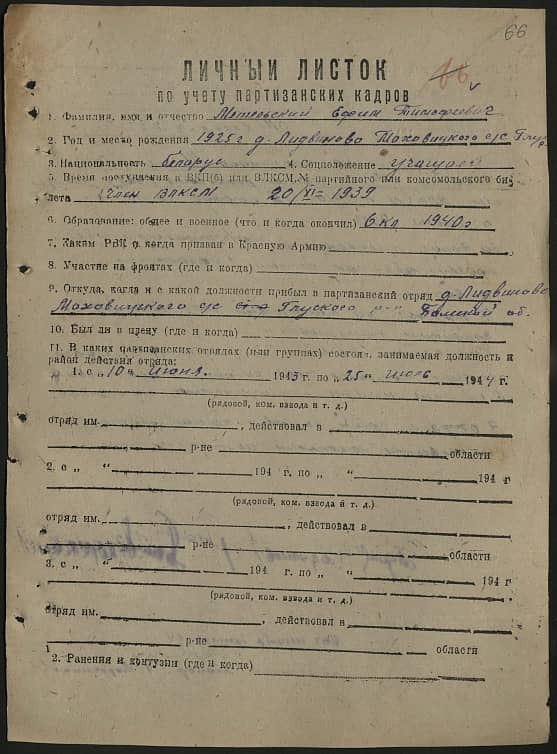 66
ЛИЧНЫЙ ЛИСТОК
по учету партизанских кадров
1. Фамилия, имя и отчество Метельский Ефим Тимофеевич
2. Год и место рождения 1925г д. Лидвиново Моховицкого с/с Глус
3. Национальность беларус 4. Соцположение учащийся
5. Время поступления в ВКП(б) или ВЛКСМ, № партийного или комсомольского би-
лета Член ВЛКСМ 20/XI-1939
6. Образование: общее и военное (что и когда окончил) 6 кл 1940г
7. Каким РВК и когда призван в Красную Армию
8. Участие на фронтах (где и когда)
9. Откуда, когда и с какой должности прибыл в партизанский отряд д. Лидвиново
Моховицкого с/с Глуского р-н об.
10. Был ли в плену (где и когда)
11. В каких партизанских отрядах (или группах) состоял, занимаемая должность и
район действия отряда:
1. с „10" июня 1943 г. по „25" июль 1944 г.
(рядовой, ком. взвода и т. д.)
отряд им. , действовал в
р-не области
2. с „ " 194 г. по „ " 194 г.
(рядовой, ком. взвода и т. д.)
отряд им. , действовал в
р-не области
3. с „ " 194 г. по „ " 194 г
(рядовой, ком. взвода и т. д.)
отряд им. , действовал в
р-не области
2. Ранения и контузии (где и когда)